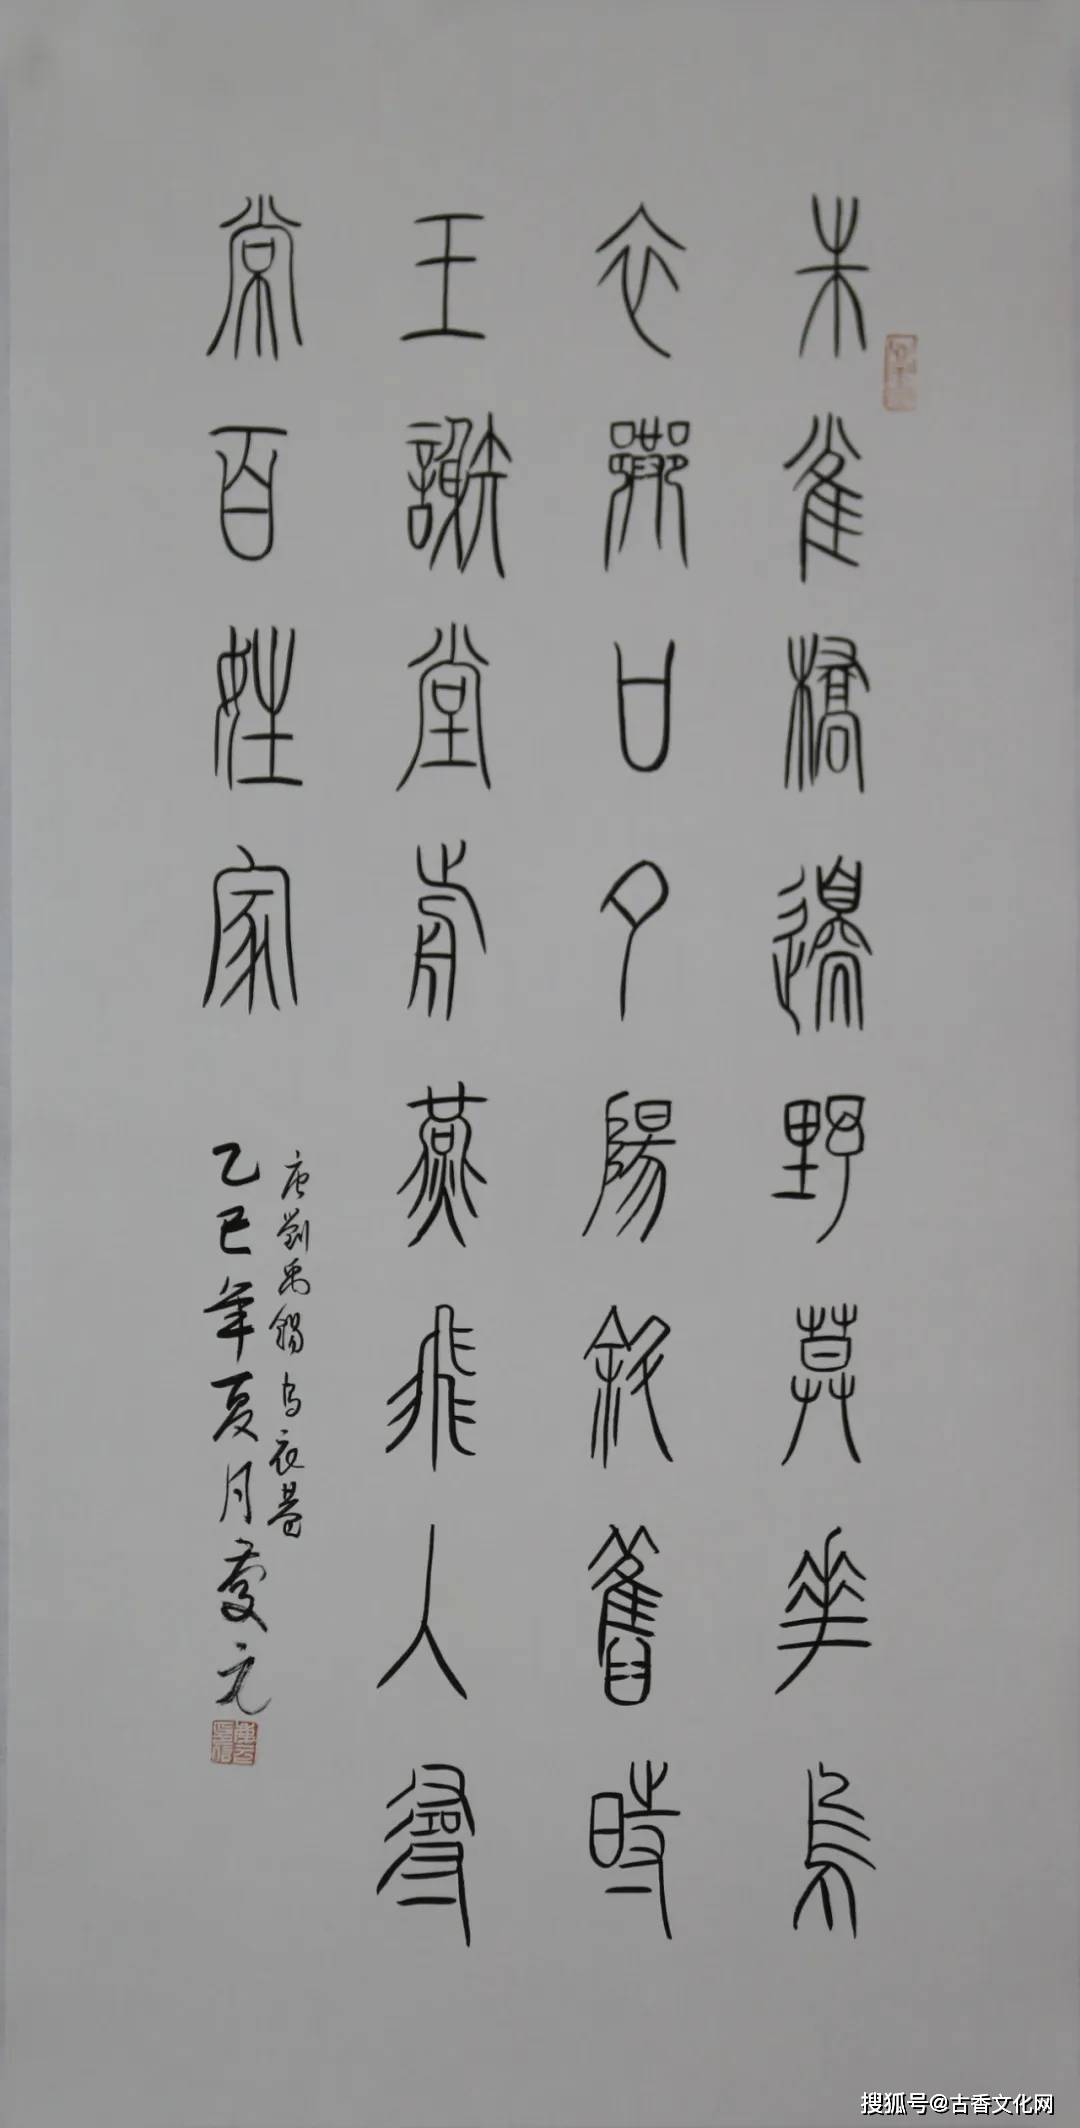 朱雀橋邊野草花烏
衣巷口夕陽斜舊時
王謝堂前燕飛入尋
常百姓家
唐劉禹錫烏衣巷
乙巳年夏月慶元
搜狐号@古香文化网